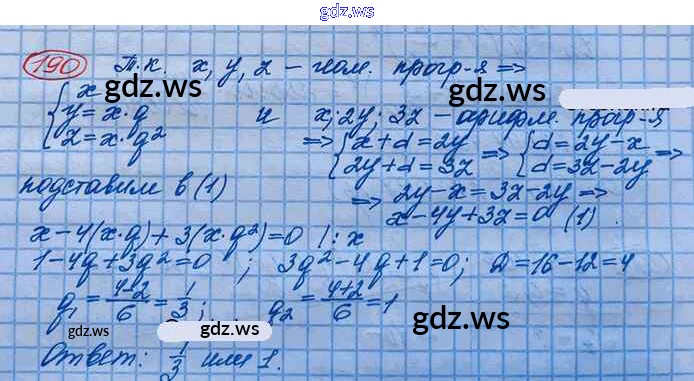 gdz.ws
190 Т.к. x, y, z – геом. прогр-я =>
gdz.ws
gdz.ws
{ x
y = x·q
z = x·q²
и x; 2y; 3z – арифм. прогр-я
=> { x+d=2y
2y+d=3z => { d=2y-x
d=3z-2y =>
подставим в (1)
=> 2y-x=3z-2y =>
x-4y+3z=0 (1).
x-4(x·q)+3(x·q²)=0 |:x
1-4q+3q²=0 ; 3q²-4q+1=0; D=16-12=4
q₁ = (4-2)/6 = 1/3; q₂ = (4+2)/6 = 1
gdz.ws
gdz.ws
gdz.ws
Ответ: 1/3 или 1.